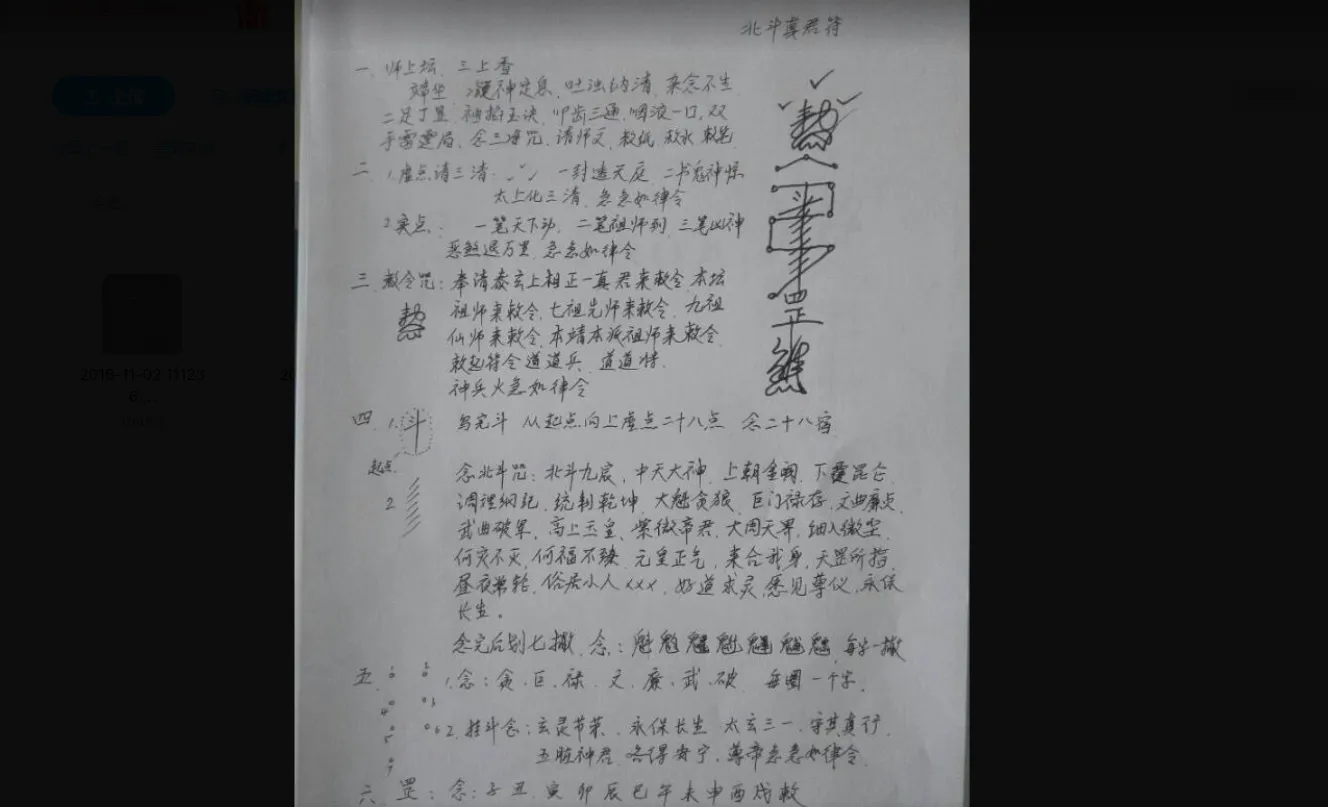 北斗真君符
一、师上坛、三上香
凝神定息、吐浊纳清、杂念不生
二足丁罡、袖掐玉诀、叩齿三通、咽液一口、双
手雷霆局、念三净咒、请师父、敕纸、敕水、敕笔
二、1.虚点请三清: 一封透天庭、二书鬼神惊
太上化三清、急急如律令
2实点: 一笔天下动、二笔祖师到、三笔凶神
恶煞退万里、急急如律令
三、敕令咒: 奉请泰玄上相正一真君来敕令、本坛
祖师来敕令、七祖先师来敕令、九祖
仙师来敕令、本靖本派祖师来敕令、
敕起符令道道兵、道道将、
神兵火急如律令
四、1. 斗 写完斗 从起点向上虚点二十八点 念二十八宿
起点
念北斗咒: 北斗九宸, 中天大神, 上朝金阙, 下覆昆仑,
2 调理纲纪, 统制乾坤, 大魁贪狼, 巨门禄存, 文曲廉贞,
武曲破军, 高上玉皇, 紫微帝君, 大周天界, 细入微尘,
何灾不灭, 何福不臻, 元皇正气, 来合我身, 天罡所指,
昼夜常轮, 俗居小人xxx, 好道求灵, 愿见尊仪, 永保
长生。
念完后划七撇、念: 每字一撇
五、1.念: 贪、巨、禄、文、廉、武、破 每圈一个字.
2.挂斗念: 玄灵节荣、永保长生 太玄三一、守其真行
五脏神君 各得安宁、尊帝急急如律令
六、罡: 念: 子丑、寅卯辰巳午未申酉戌